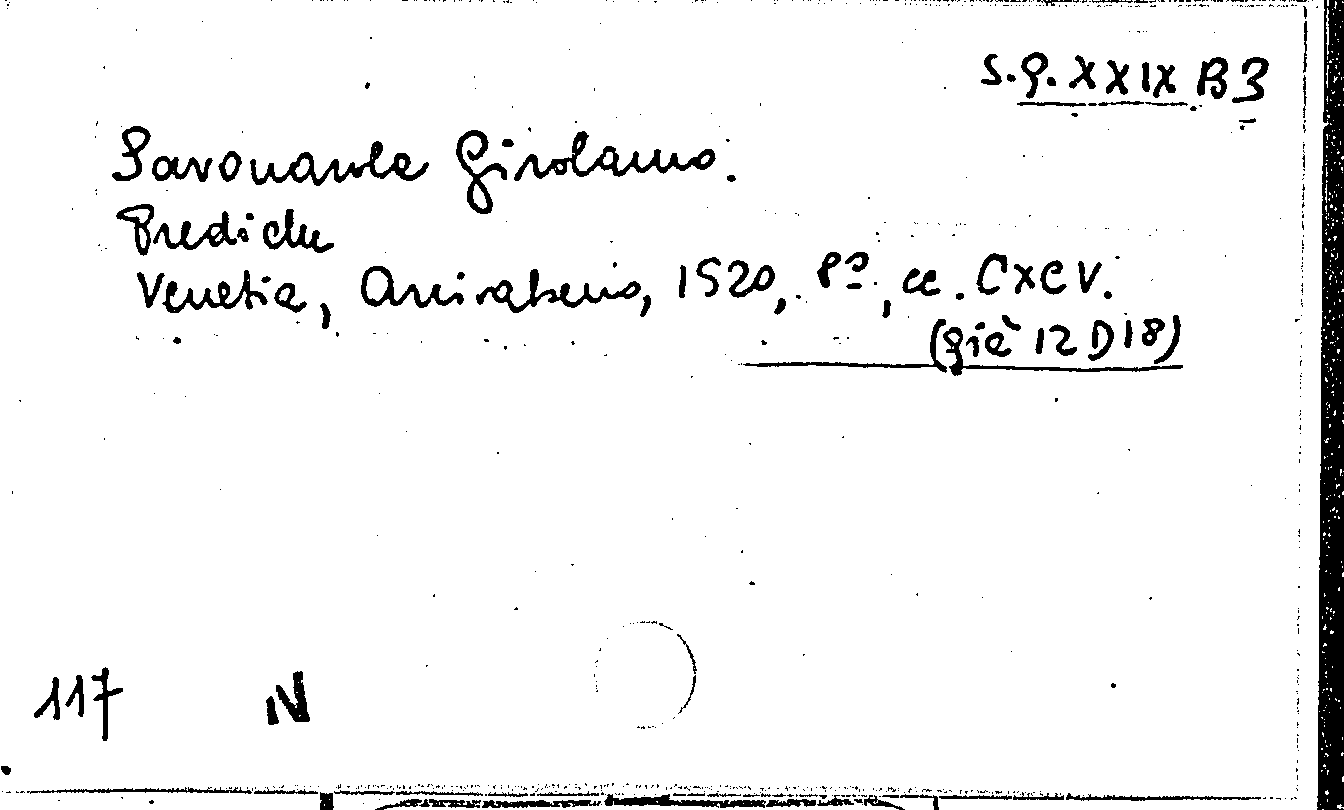 S.Q. XXIX B 3
Savonarola Girolamo.
Prediche
Venetia, Arrivabeno, 1520, 8º, cc. CXCV.
(già 12 D 18)
117 N